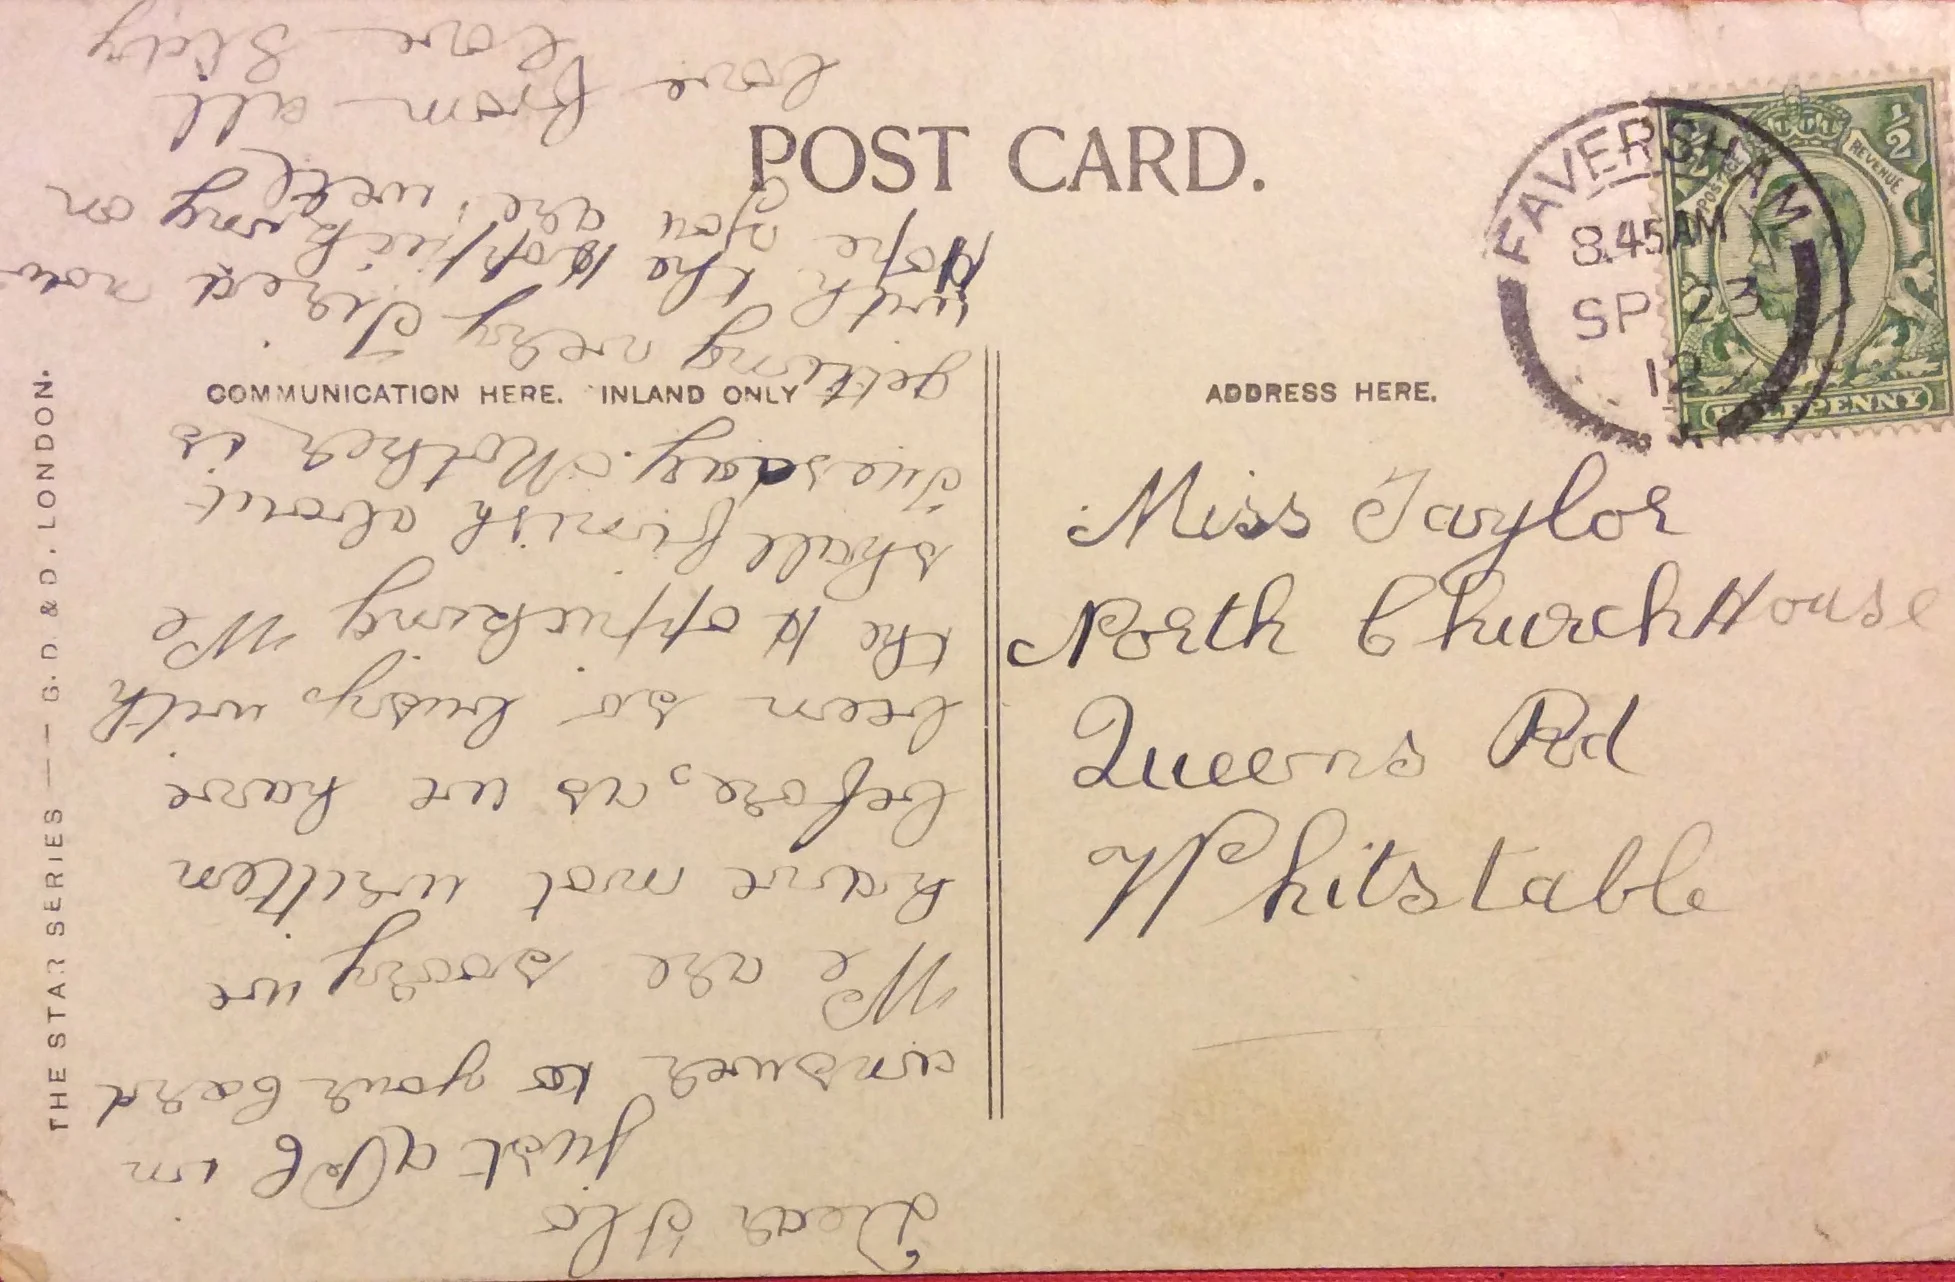 POST CARD.
FAVERSHAM
8.45 AM
SP 23
12
POSTAGE
REVENUE
1/2
HALFPENNY
COMMUNICATION HERE. INLAND ONLY
ADDRESS HERE.
Miss Taylor
North Church House
Queens Rd
Whitstable
Dear Flo
just a P.C in
answer to your Card
We are sorry we
have not written
before, as we have
been so busy, with
the Hoppicking We
shall finish about
Tuesday. Mother is
getting very Tired now
with the Hoppicking on
Hope you are. well
love from all
love
THE STAR SERIES — G. D. & D. LONDON.